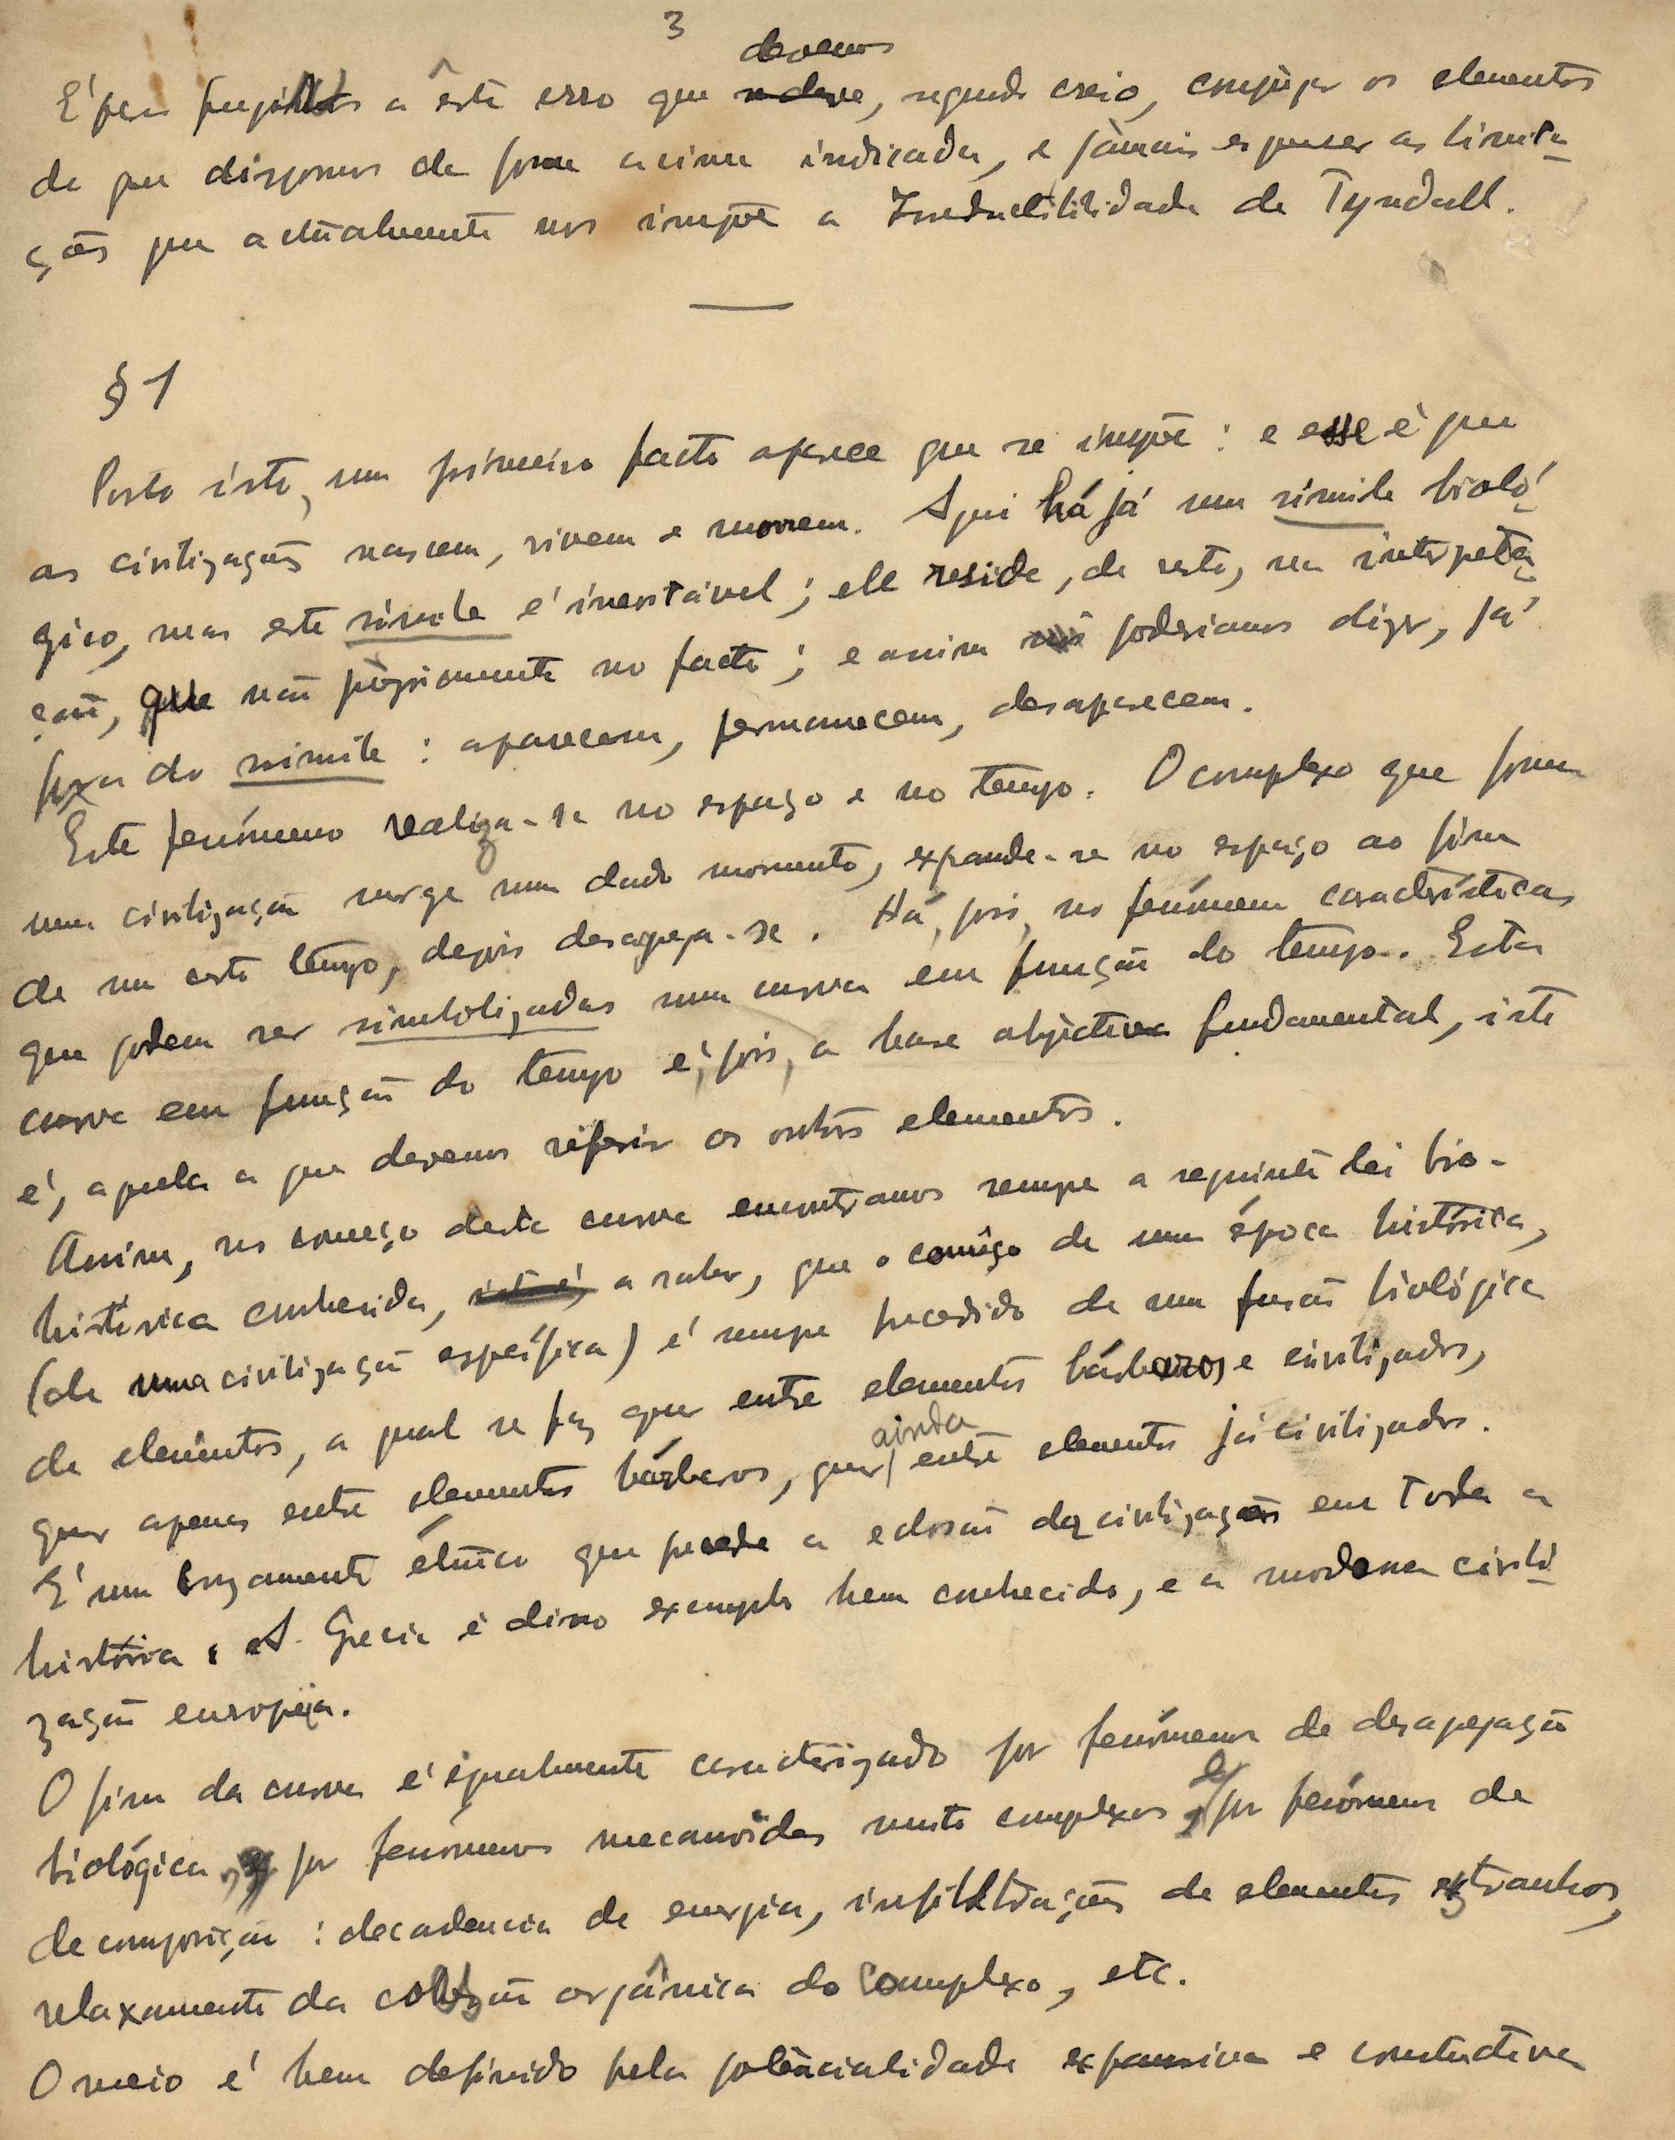 3
devemos
É para fugirmos a êste erro que se deve, segundo creio, conjugar os elementos
de que dispomos da forma acima indicada, e jàmais esquecer as limita-
ções que actualmente nos impõe a Irreductibilidade de Tyndall.
§ 1
Posto isto, um primeiro facto aparece que se impõe: e esse é que
as civilizações nascem, vivem e morrem. Aqui há já um símile bioló-
gico, mas este símile é inevitável; ele reside, de resto, na interpreta-
ção, que não pròpriamente no facto; e assim poderiamos dizer, já
fora do símile: aparecem, permanecem, desaparecem.
Este fenómeno realiza-se no espaço e no tempo. O complexo que forma
uma civilização surge num dado momento, expande-se no espaço ao fim
de um certo tempo, depois desagrega-se. Há, pois, no fenómeno características
que podem ser simbolizadas numa curva em função do tempo. Esta
curva em função do tempo é, pois, a base objectiva fundamental, isto
é, aquela a que devemos referir os outros elementos.
Assim, no começo desta curva encontramos sempre a seguinte lei bio-
histórica conhecida, isto é, a saber, que o comêço de uma época histórica,
(de uma civilização específica) é sempre precedido de uma fusão biológica
de elementos, a qual se faz quer entre elementos bárbaros e civilizados,
ainda
quer apenas entre elementos bárbaros, quer entre elementos já civilizados.
É um cruzamento étnico que precede a eclosão das civilizações em toda a
história. A Grecia é disso exemplo bem conhecido, e a moderna civili-
zação europeia.
O fim da curva é igualmente caracterizado por fenómenos de desagregação
biológica, por fenómenos mecanóides muito complexos, e por fenómenos de
decomposição: decadencia de energia, infiltrações de elementos extranhos,
relaxamento da coesão orgânica do complexo, etc.
O meio é bem definido pela potêncialidade expansiva e construtiva